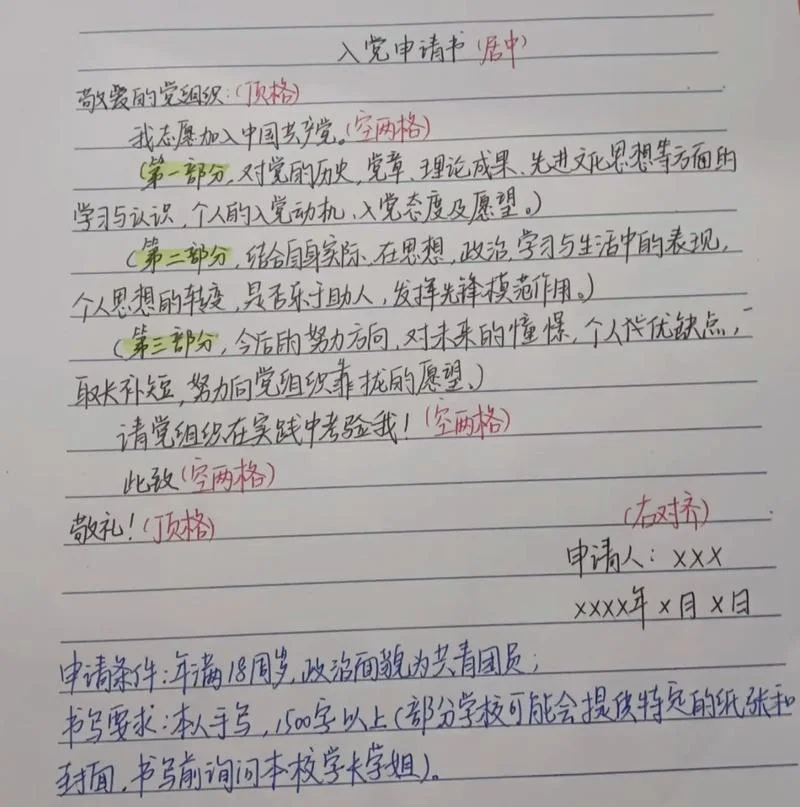 入党申请书(居中)
敬爱的党组织:(顶格)
我志愿加入中国共产党。(空两格)
(第一部分,对党的历史,党章、理论成果、先进文化思想等方面的
学习与认识,个人的入党动机、入党态度及愿望。)
(第二部分,结合自身实际,在思想,政治,学习与生活中的表现,
个人思想的转变,是否乐于助人,发挥先锋模范作用。)
(第三部分,今后的努力方向,对未来的憧憬,个人优缺点,
取长补短,努力向党组织靠拢的愿望。)
请党组织在实践中考验我!(空两格)
此致(空两格)
敬礼!(顶格)
(右对齐)
申请人:xxx
xxxx年x月x日
申请条件:年满18周岁,政治面貌为共青团员;
书写要求:本人手写,1500字以上(部分学校可能会提供特定的纸张和
封面,书写前询问本校学长学姐)。